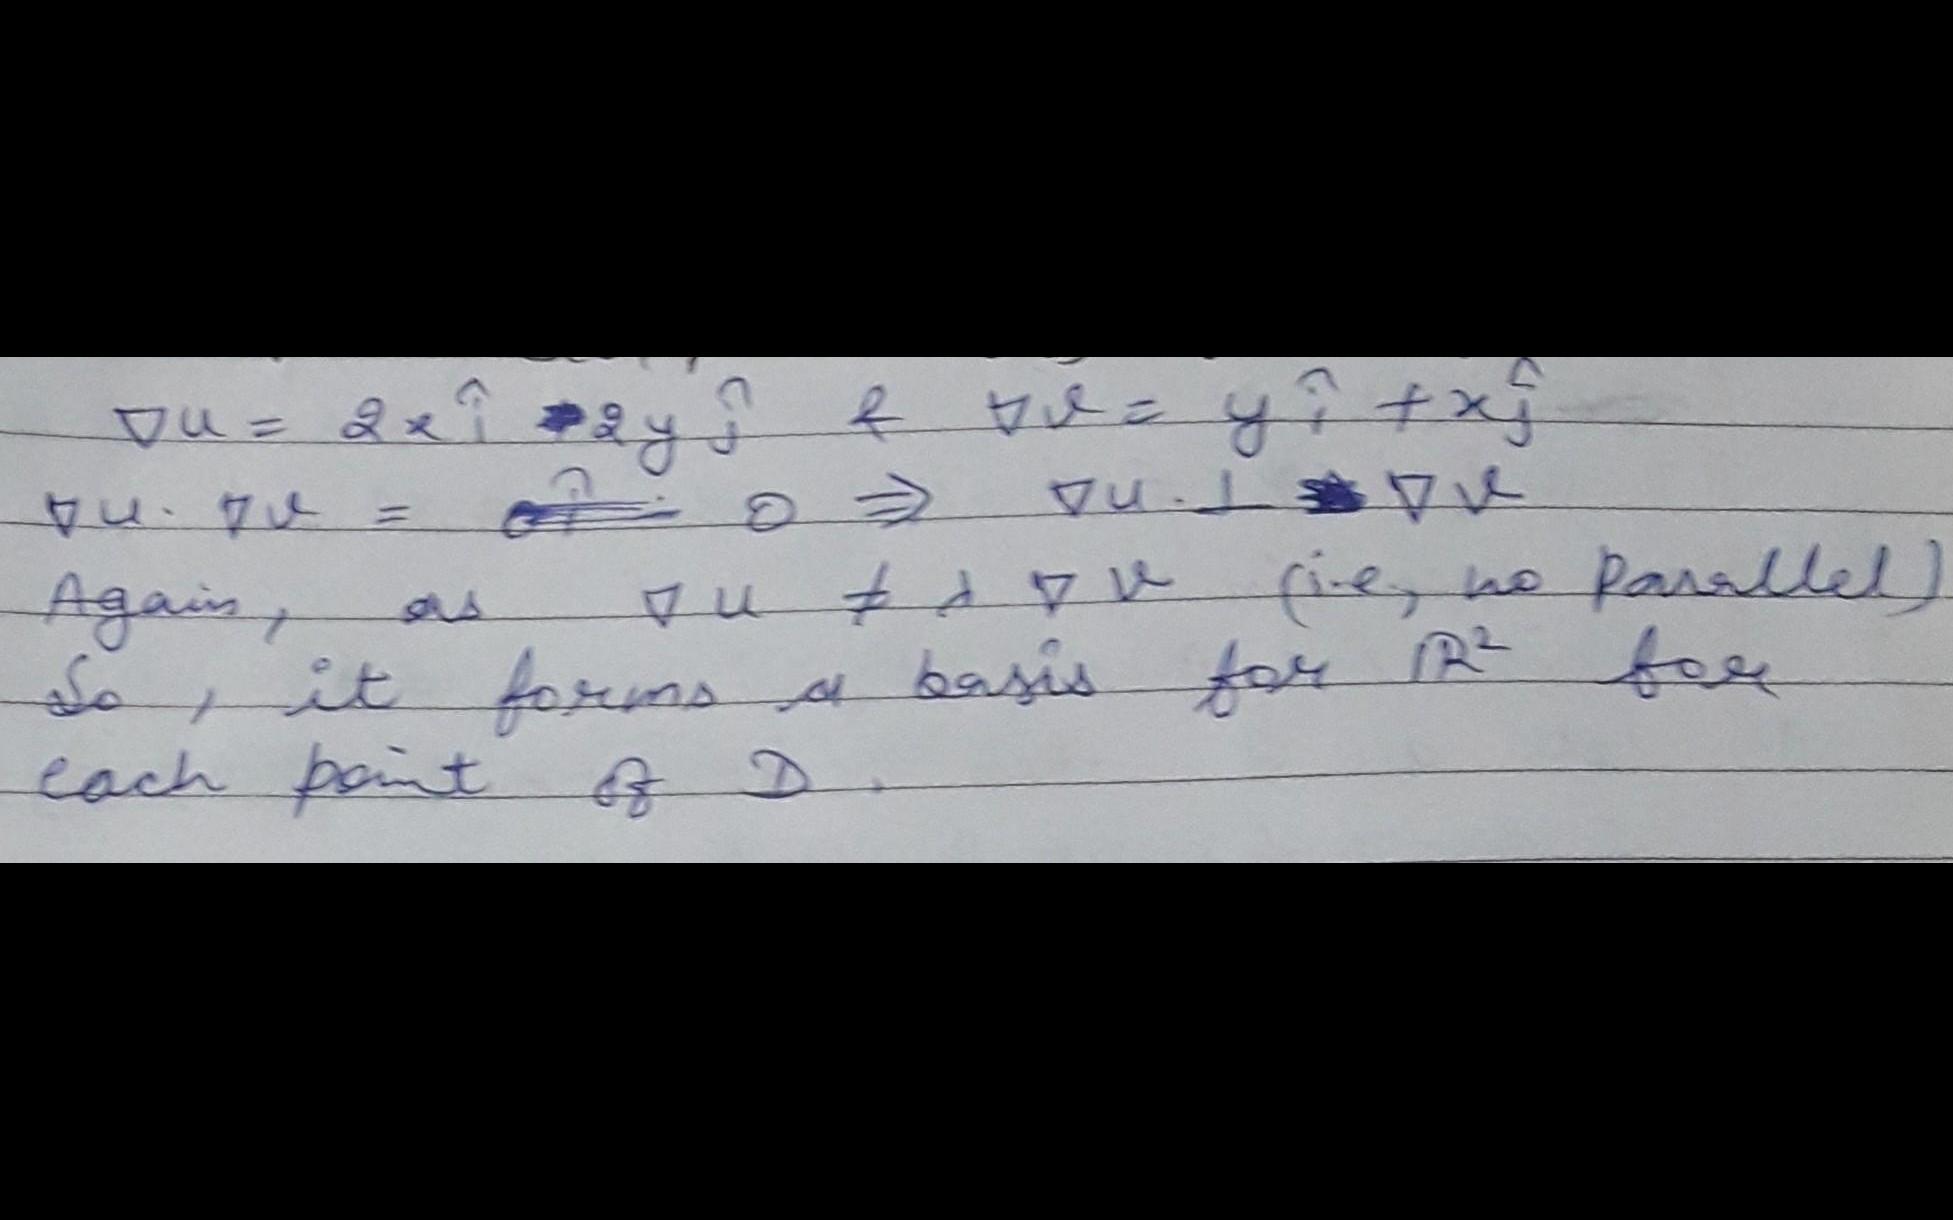 ∇u = 2xî - 2yĵ & ∇v = yî + xĵ
∇u . ∇v = 0 ⇒ ∇u . ⊥ ∇v
Again, as ∇u ≠ λ ∇v (i.e, no parallel)
So, it forms a basis for ℝ² for
each point of D.